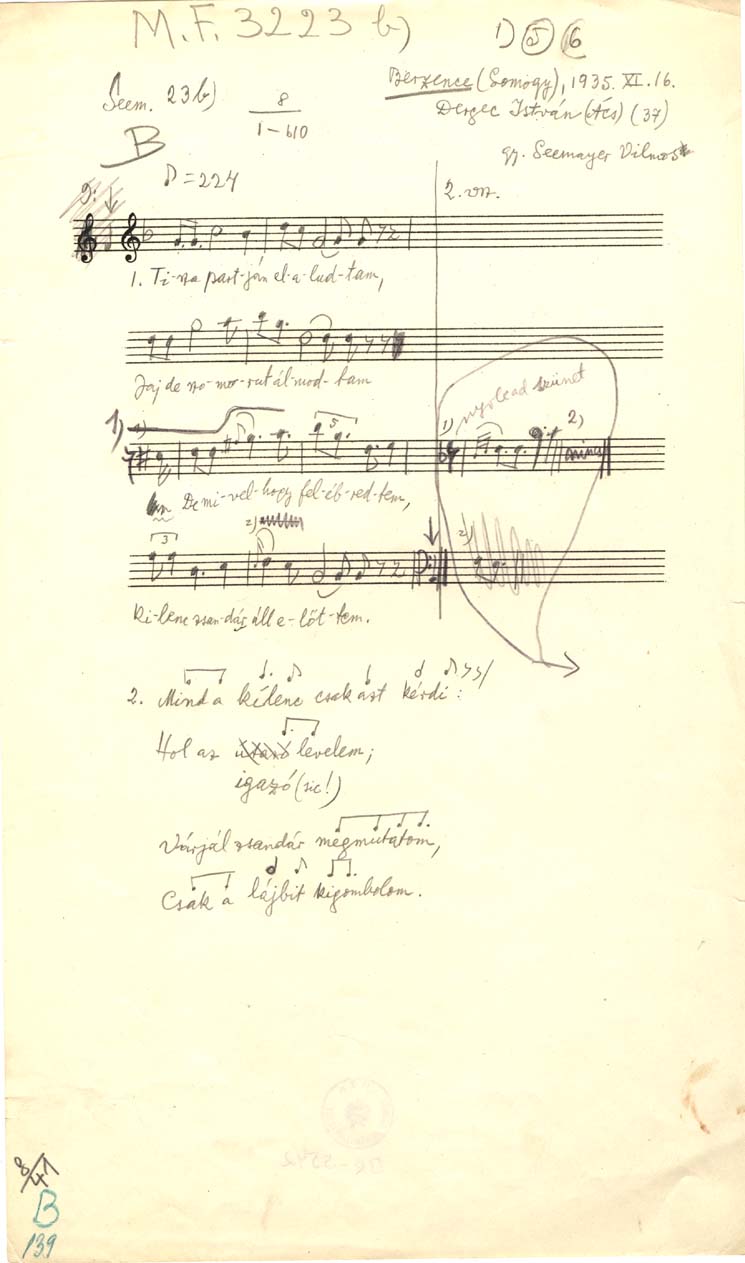 M.F. 3223 b)
1) 5 6
Berzence (Somogy), 1935. XI. 16.
Seem. 23 b)
8
1 – b10
Dergec István (Ács) (37)
B
gy. Seemayer Vilmos
♪ = 224
2. vsz.
1. Ti-sza part-ján el-a-lud-tam,
Jaj de szo-mo-rut ál-mod-tam
nyolcad szünet
1)
1)
2)
De mi-vel-hogy fel-éb-red-tem,
3
5
2)
2)
Ki-lenc zsan-dár áll e-lőt-tem.
2. Mind a kilenc csak aszt kérdi :
Hol az utazó levelem;
igazó (sic!)
Várjál zsandár megmutatom,
Csak a lájbit kigombolom.
8/41
B
139